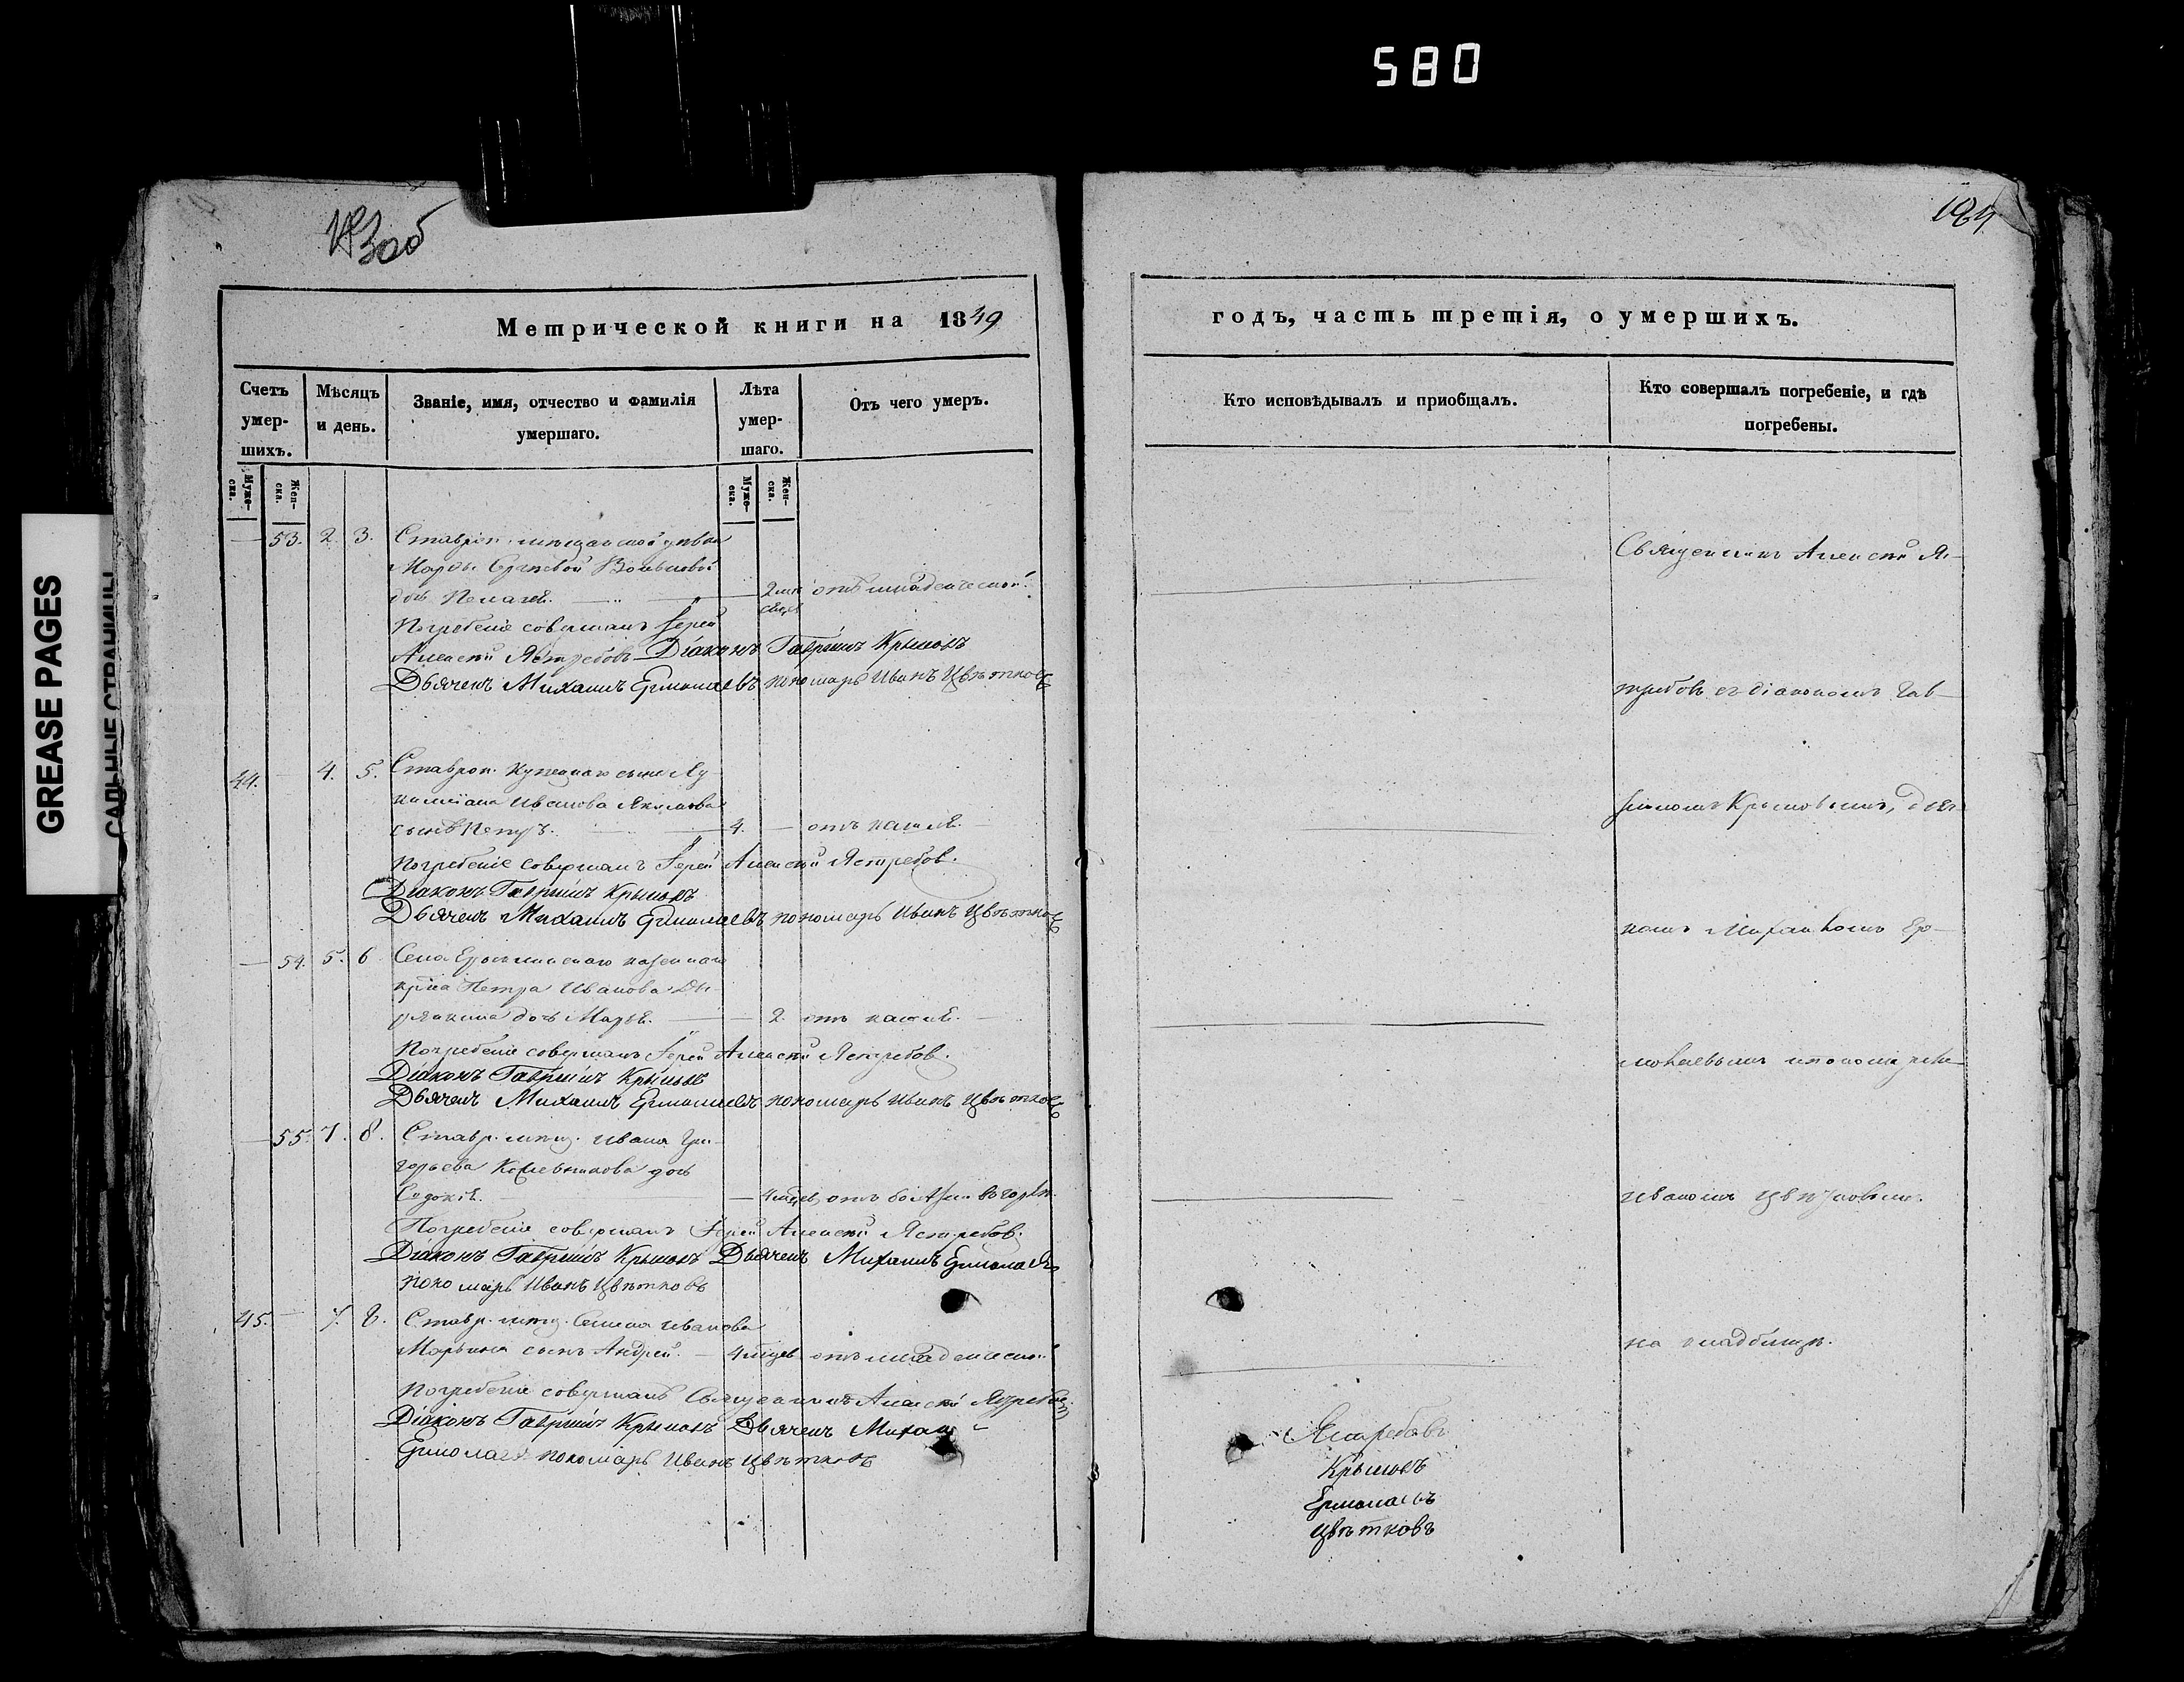 580
GREASE PAGES
САЛЬНЫЕ СТРАНИЦЫ
124
Метрической книги на 1849
годъ, часть третія, о умершихъ.
Счетъ умер-шихъ.
Мѣсяцъ и день.
Званіе, имя, отчество и фамилія умершаго.
Лѣта умер-шаго.
Отъ чего умеръ.
Кто исповѣдывалъ и приобщалъ.
Кто совершалъ погребеніе, и гдѣ погребены.
Муже-ска.
Жен-ска.
Муже-ска.
Жен-ска.
53. 2. 3. Ставроп. мѣщанской дѣвки
дочь Пелагея. 2 мѣсяцев отъ младенческой.
Погребеніе совершалъ Іерей
Алексѣй Ястребовъ Діаконъ Гавріилъ Крыловъ
Дьячекъ Михаилъ Ермолаевъ пономарь Иванъ Цвѣтковъ
44. 4. 5. Ставроп. купецкаго сына Лу-
Иванова Якимова
сынъ Петръ. 4. отъ кашля.
Погребеніе совершалъ Іерей Алексѣй Ястребов.
Діаконъ Гавріилъ Крыловъ
Дьячекъ Михаилъ Ермолаевъ пономарь Иванъ Цвѣтковъ
54. 5. 6. Села казеннаго
Петра Иванова
дочь Марья. 2. отъ кашля.
Погребеніе совершалъ Іерей Алексѣй Ястребов.
Діаконъ Гавріилъ Крыловъ
Дьячекъ Михаилъ Ермолаевъ пономарь Иванъ Цвѣтковъ
55. 7. 8. Ставр. мѣщ. Ивана Гри-
горьева дочь
4 мѣсяцев, отъ болѣзни въ горлѣ.
Погребеніе совершалъ Іерей Алексѣй Ястребов.
Діаконъ Гавріилъ Крыловъ Дьячекъ Михаилъ Ермолаевъ
пономарь Иванъ Цвѣтковъ
45. 7. 8. Ставр. мѣщ. Семена Иванова
Марьина сынъ Андрей. 4 мѣсяцев отъ младенческой
Погребеніе совершалъ Священникъ Алексѣй Ястребовъ
Діаконъ Гавріилъ Крыловъ Дьячекъ Михаил
Ермолаевъ пономарь Иванъ Цвѣтковъ
Священникъ Алексѣй Яс-
требовъ съ діакономъ Гав-
ріиломъ Крыловымъ, дьяч-
комъ Михаиломъ Ер-
молаевымъ и пономаремъ
Иваномъ Цвѣтковымъ.
на кладбищѣ.
Ястребовъ
Крыловъ
Ермолаевъ
Цвѣтковъ